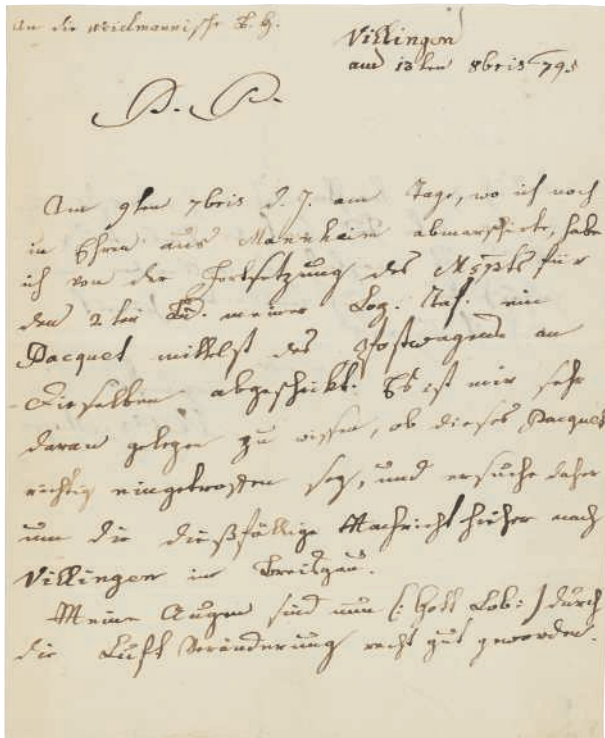 An die Weidmannische B. H.
Villingen
am 13ten 8bris 795
P. P.
Am 9ten 7bris d. J. am Tage, wo ich noch
in Ehren aus Mannheim abmarschirte, habe
ich von der Fortsetzung des Mspts für
den 2ten Bd. meiner Log. Taf. ein
Pacquet mittelst des Postwagens an
Dieselben abgeschikt. Es ist mir sehr
daran gelegen zu wissen, ob dieses Pacquet
richtig eingetroffen sey, und ersuche daher
um die dießfällige Nachricht hieher nach
Villingen im Breisgau.
Meine Augen sind nun (: Gott Lob :) durch
die Luft Veränderung recht gut geworden.